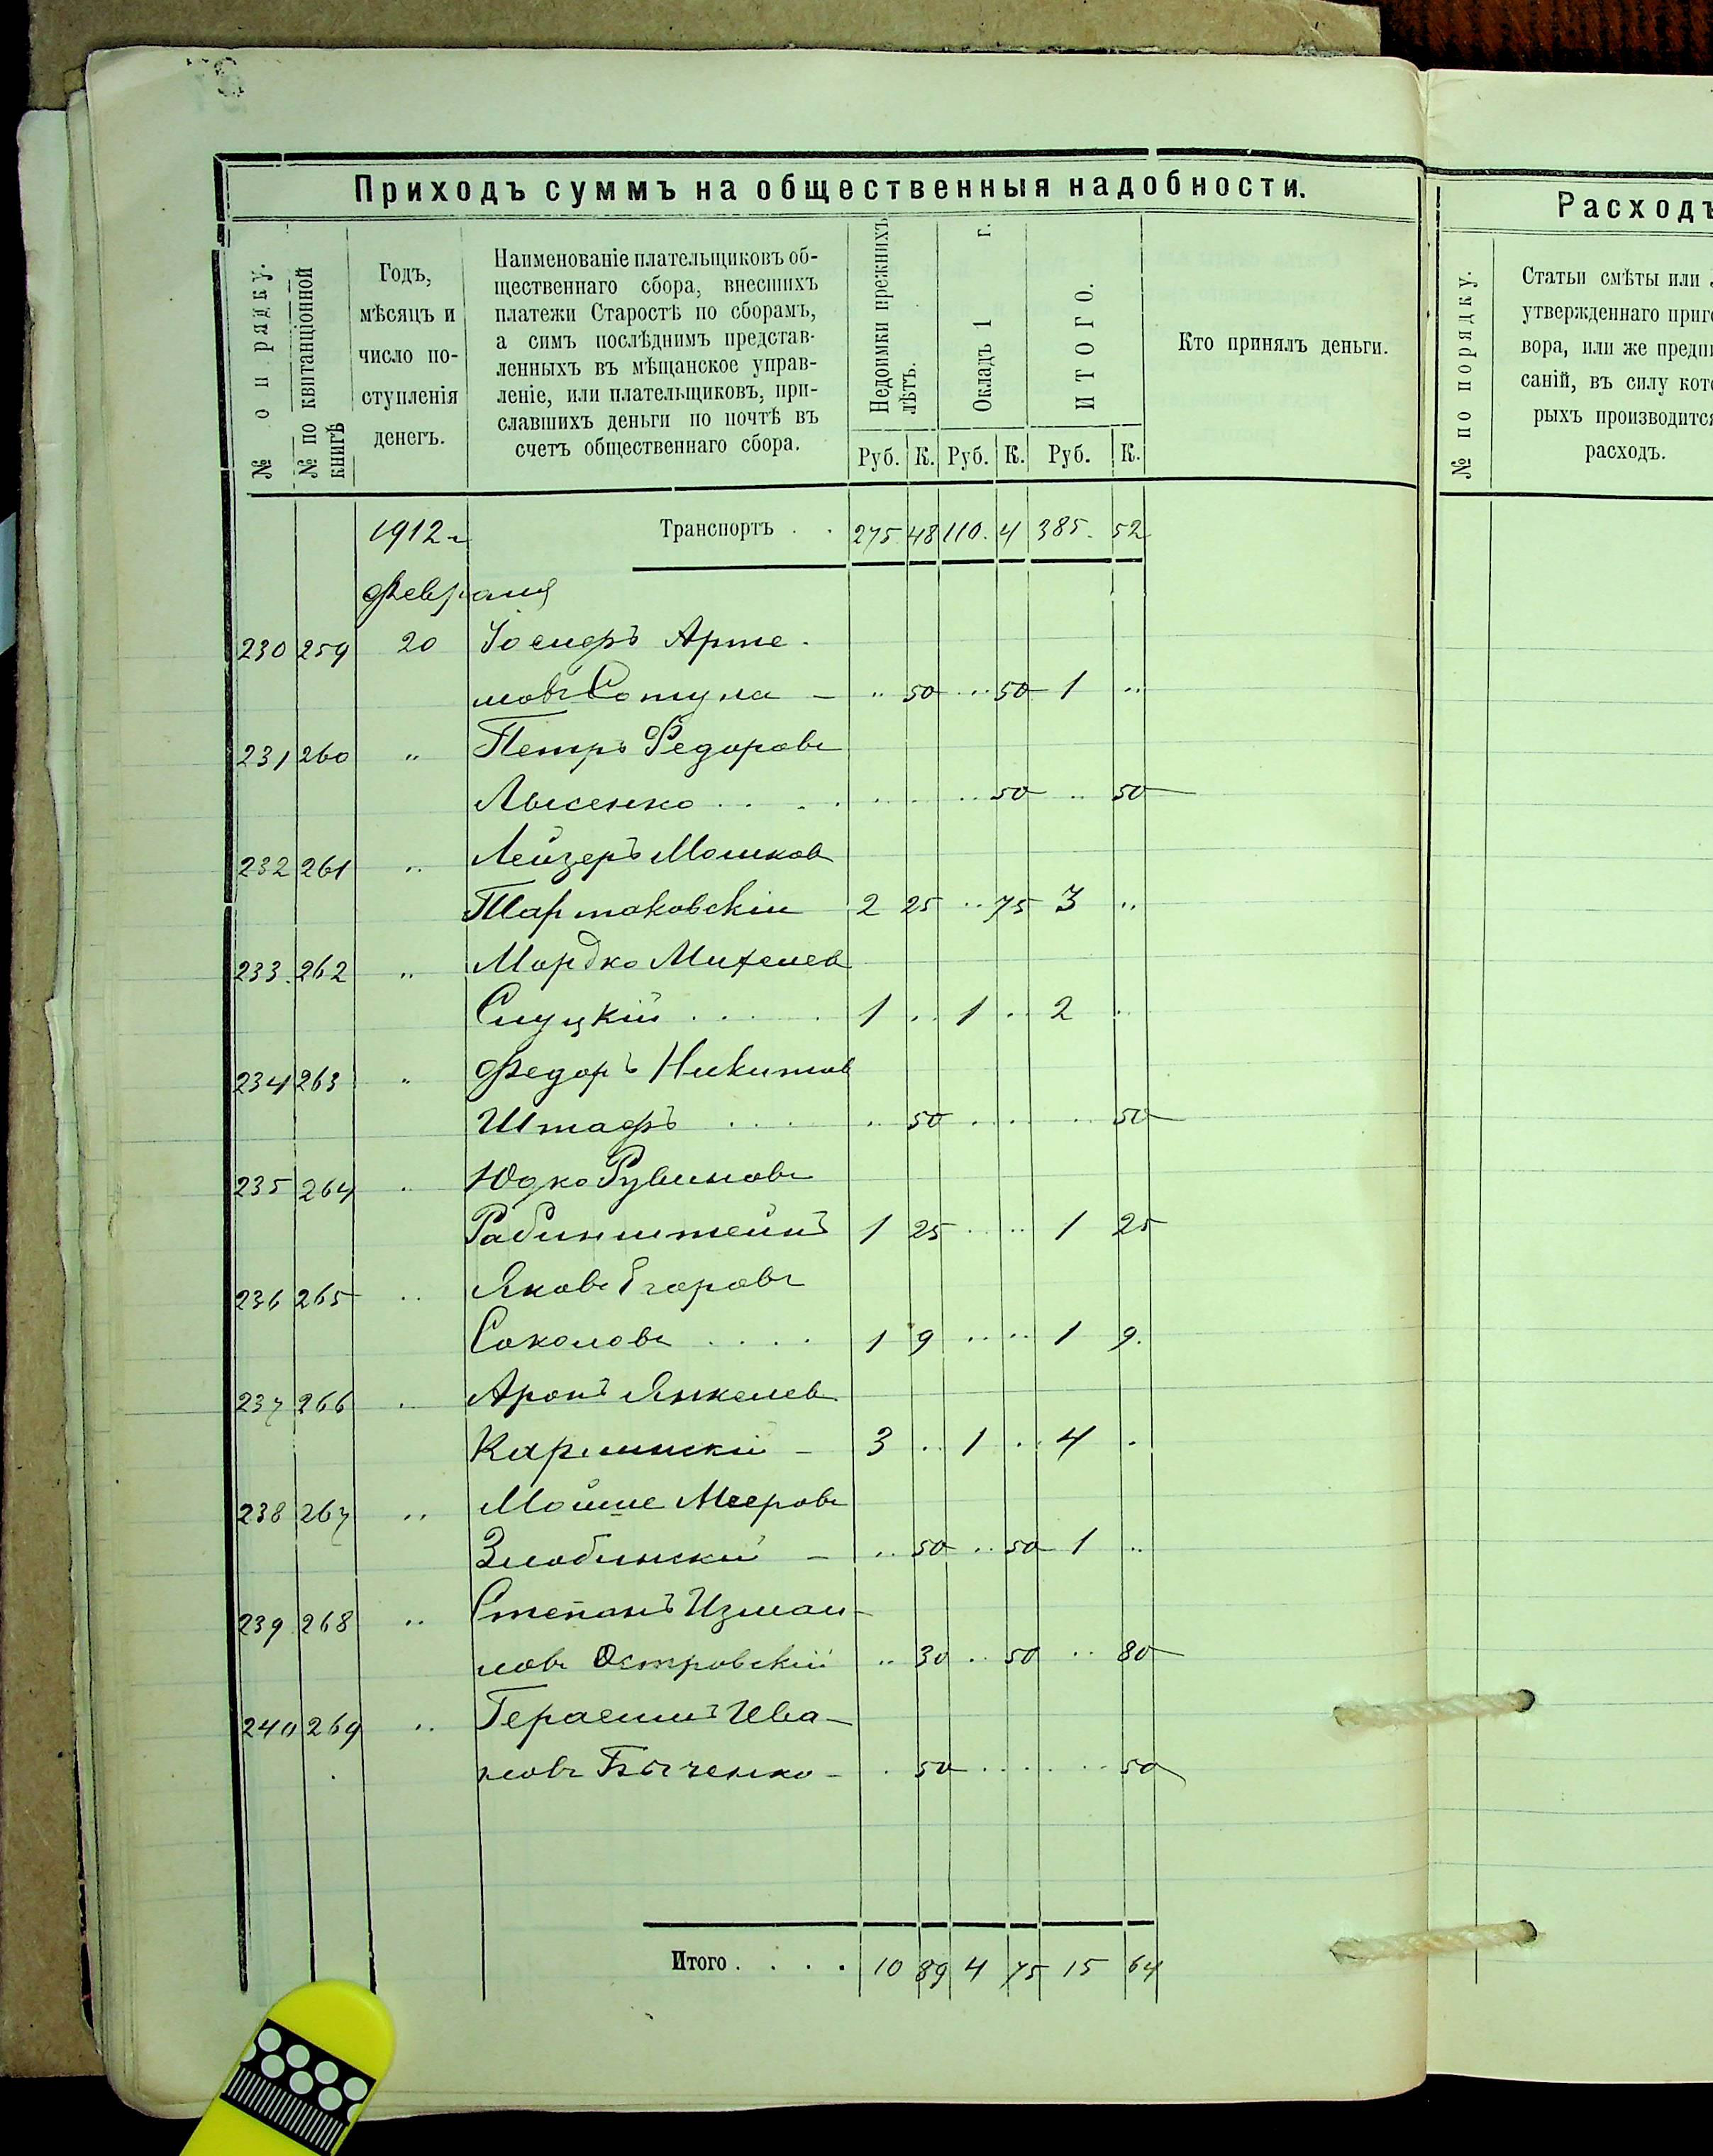 Приходъ суммъ на общественныя надобности.
№ по рядку.
№ по квитанціонной книгѣ
Годъ, мѣсяцъ и число поступленія денегъ.
Наименованіе плательщиковъ об-
щественнаго сбора, внесшихъ
платежи Старостѣ по сборамъ,
а симъ послѣднимъ представ-
ленныхъ въ мѣщанское управ-
леніе, или плательщиковъ, при-
славшихъ деньги по почтѣ въ
счетъ общественнаго сбора.
Недоимки прежнихъ лѣтъ.
Окладъ 1 г.
ИТОГО.
Кто принялъ деньги.
Руб. К. Руб. К. Руб. К.
1912 г Транспортъ . . 275. 48 110. 4 385. 52
Февраля
230 259 20 Іосифъ Арте-
мовъ – .. 50 .. 50 1 ..
231 260 " Петръ Федоровъ
Лысенко . . . . . . . .. 50 .. 50
232 261 .. Лейзеръ Мошков
Тартаковскій 2 25 .. 75 3 ..
233. 262 .. Мордко Михелев
Слуцкій . . . . 1 .. 1 .. 2 ..
234 263 " Федоръ Никитов
Штафъ . . . . .. 50 . . . . 50
235 264 .. Юдко Рувиновъ
Рабинштейнъ 1 25 .. .. 1 25
236 265 .. Яковъ Егоровъ
Соколовъ . . . . 1 9 .. .. 1 9.
237 266 .. Аронъ Янкелев
3 .. 1 .. 4 .
238 267 .. Мойше Мееровъ
Злобинскій – .. 50 .. 50 1 ..
239 268 .. Степанъ Измаи-
ловъ Островскій .. 30 .. 50 .. 80
240 269 .. Герасимъ Ива-
новъ – . 50 . . . . 50
Итого . . . . 10 89 4 75 15 64
Расходъ
№ по порядку.
Статьи смѣты или
утвержденнаго приго
вора, или же предпи
саній, въ силу кото
рыхъ производится
расходъ.